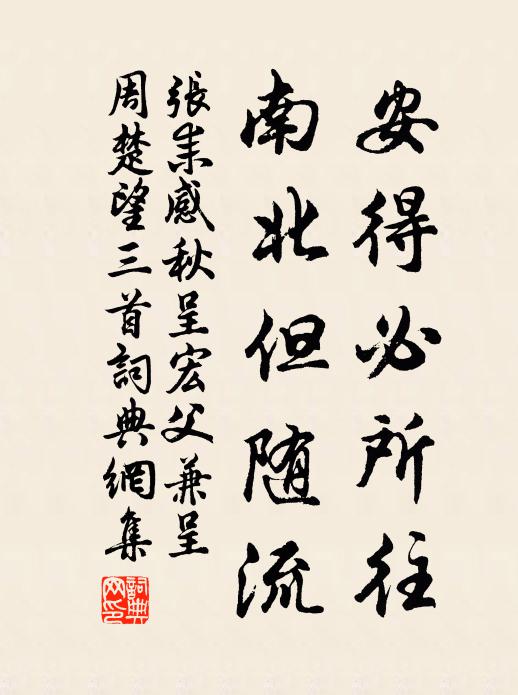 安得必所往
南北但随流
張耒感秋呈宏父兼呈
周楚望三首詞典網集
詞典網印